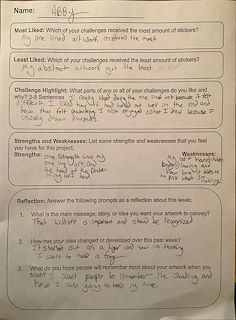 Name: ABBY
Most Liked: Which of your challenges received the most amount of stickers?
My one lined artwork received the most
Least Liked: Which of your challenges received the least amount of stickers?
My abstract artwork got the least
Challenge Highlight: What parts of any or all of your challenges do you like and
why? 3-5 Sentences I really liked the one lined art because it felt
difficult. I liked how it turned out well in the end and
how that felt. I also enjoyed what I drew because I
usually draw
Strengths and Weaknesses: List some strengths and weaknesses that you feel
you have for this project.
Strengths: Weaknesses:
one strength was my
one line work and
the of the
in my
My
and
how long it takes me
to pick what I'm
making
Reflection: Answer the following prompts as a reflection about this week:
1. What is the main message, story, or idea you want your artwork to convey?
That wildlife is important and should be recognized
2. How has your idea changed or developed over this past week?
It started out as a tiger and now I'm thinking
I want to make a frog
3. What do you hope people will remember most about your artwork when you
finish? I want people to remember the shading and
how I was going to take my time